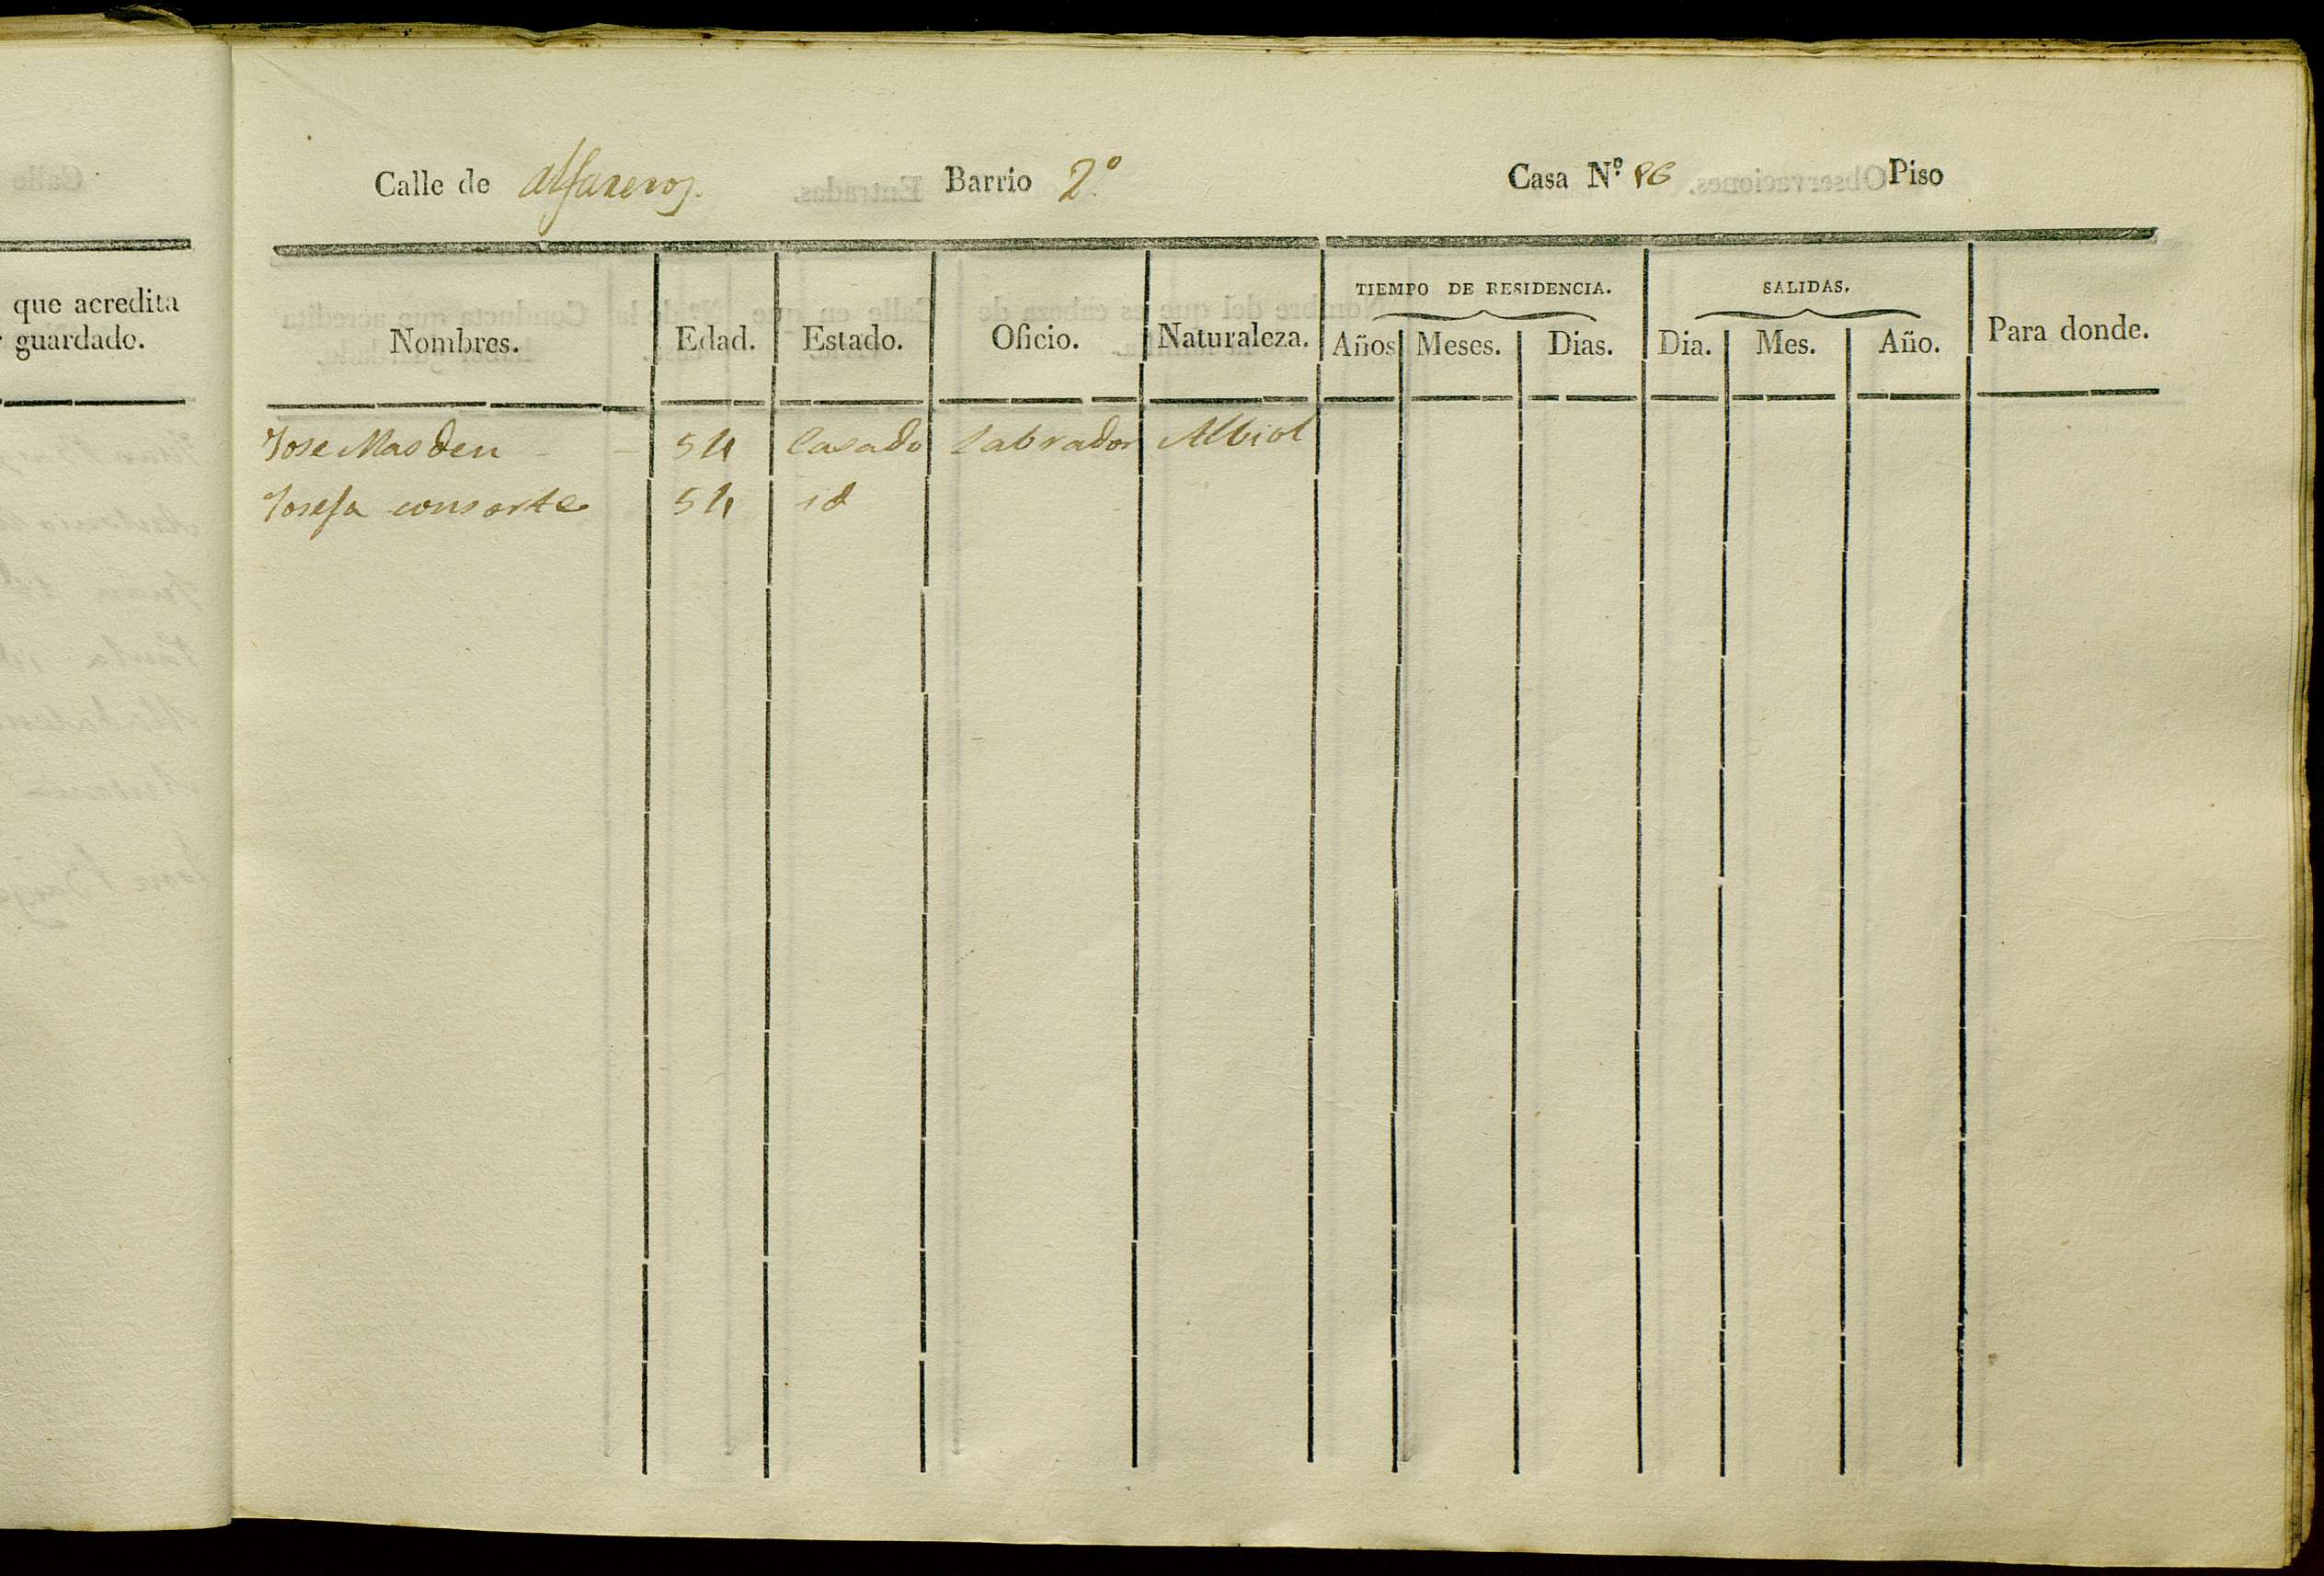 que acredita
guardado.
Calle de Alfareros. Barrio 2º Casa Nº 86 Piso
TIEMPO DE RESIDENCIA. SALIDAS.
Nombres. Edad. Estado. Oficio. Naturaleza. Años Meses. Dias. Dia. Mes. Año. Para donde.
Jose Masdeu - - 54 Casado Labrador Albiol
Josefa consorte 54 id